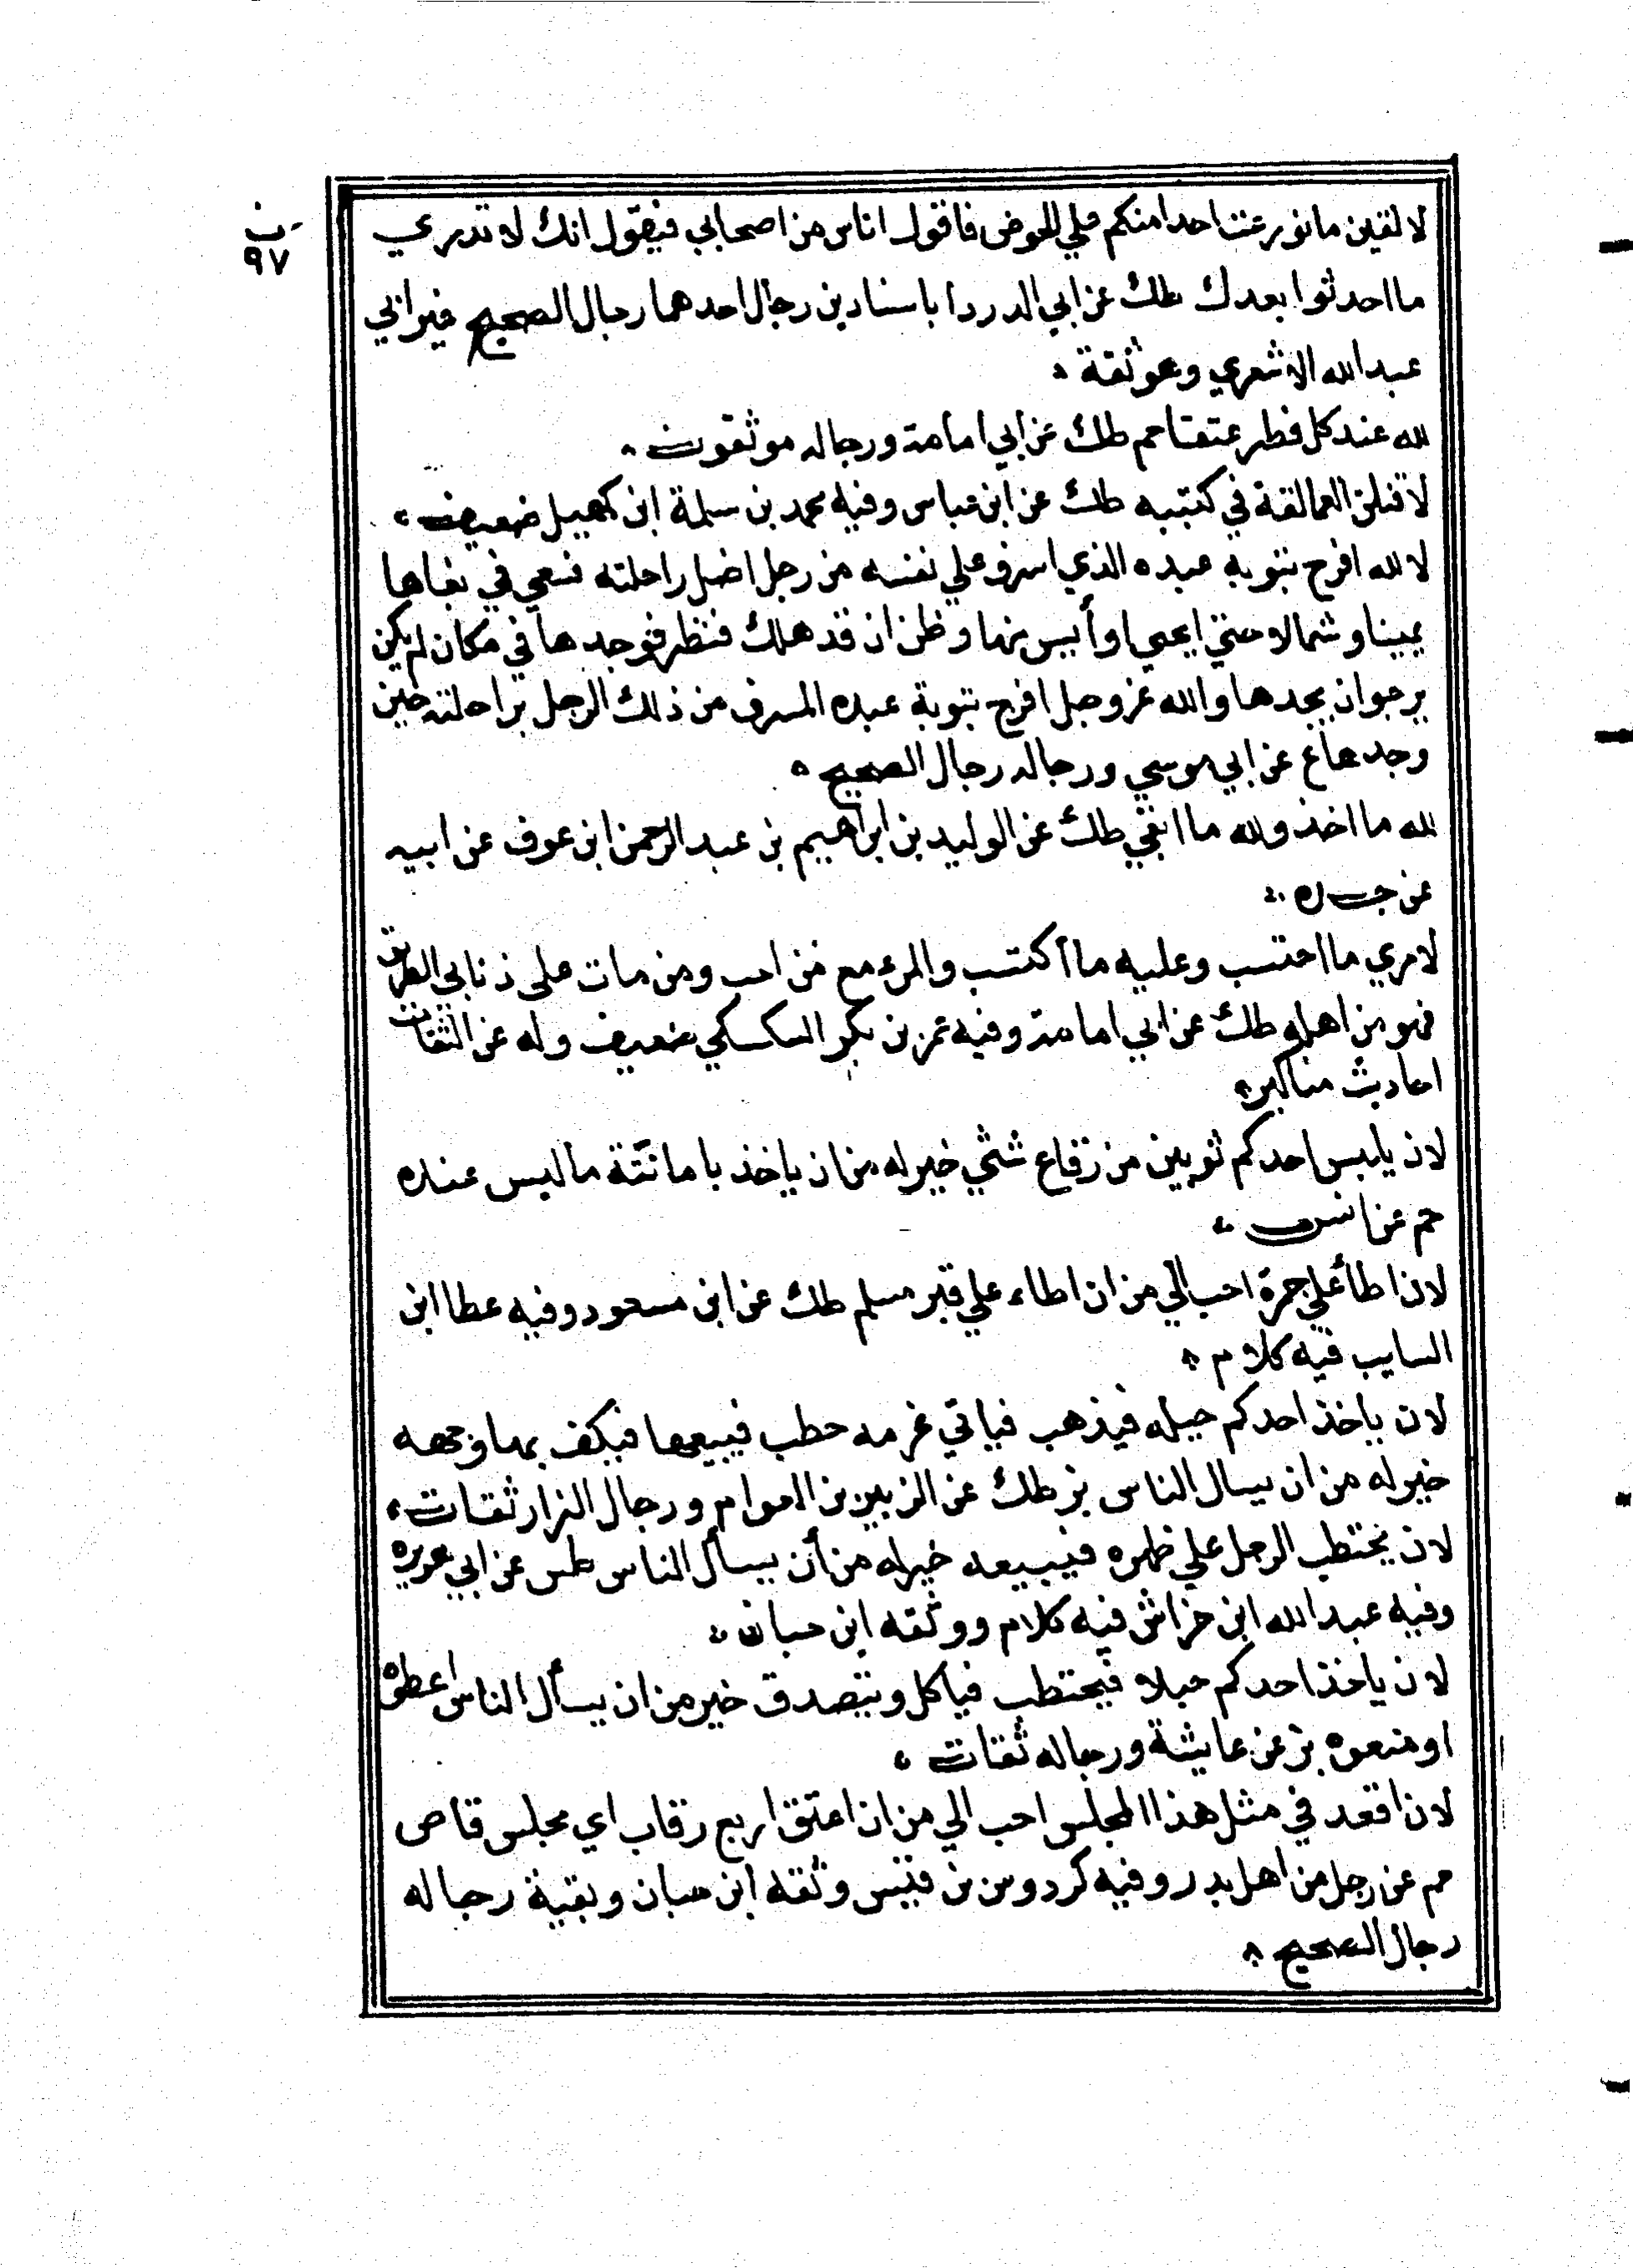 ب
٩٧
لا لفين ما نوزعت احدا منكم علي الحوض فاقول اناس من اصحابي فيقول انك لا تدري
ما احدثوا بعدك طك عن ابي الدردا باسنادين رجال احدهما رجال الصحيح غير ابي
عبد الله الاشعري وهو ثقة
لله عند كل فطر عتقا حم طك عن ابي امامة ورجاله موثقون
لا قتلن العمالقة في كتيبه طك عن ابن عباس وفيه محمد بن سلمة ابن كهيل ضعيف
لا لله افرح بتوبة عبده الذي اسرف علي نفسه من رجل اضل راحلته فسعي في بغاها
يمينا وشمالا حتي ايعيي او أيس منها وظن ان قد هلك فنظر فوجدها في مكان لم يكن
يرجوان يجدها والله عز وجل افرح بتوبة عبده المسرف من ذلك الرجل براحلته حين
وجدها ع عن ابي موسي ورجاله رجال الصحيح
لله ما اخذ ولله ما ابقي طك عن الوليد بن ابراهيم بن عبد الرحمن ابن عوف عن ابيه
عن جده
لامري ما احتسب وعليه ما أكتسب والمرء مع من احب ومن مات على ذنابي الطريق
فهو من اهله طك عن ابي امامة وفيه عمر بن بكر السكسكي ضعيف وله عن الثقات
احاديث مناكير
لان يلبس احدكم ثوبين من رقاع شتي خير له من ان ياخذ بامانته ما ليس عنده
حم عن انس
لان اطأ علي جمرة احب الي من ان اطاء علي قبر مسلم طك عن ابن مسعود وفيه عطا ابن
السايب فيه كلام
لان ياخذ احدكم حبله فيذهب فياتي بحزمه حطب فيبيعها فيكف بها وجهه
خير له من ان يسال الناس بز طك عن الزبير بن العوام ورجال البزار ثقات
لان يحتطب الرجل علي ظهره فيبيعه خير له من أن يسأل الناس طس عن ابي هريره
وفيه عبد الله ابن خراش فيه كلام ووثقه ابن حبان
لان ياخذ احدكم حبلا فيحتطب فياكل ويتصدق خير من ان يسأل الناس اعطوه
او منعوه بز عن عايشة ورجاله ثقات
لان اقعد في مثل هذا المجلس احب الي من ان اعتق اربع رقاب اي مجلس قاص
حم عن رجل من اهل بدر وفيه كردوس بن قيس وثقه ابن حبان وبقية رجاله
رجال الصحيح